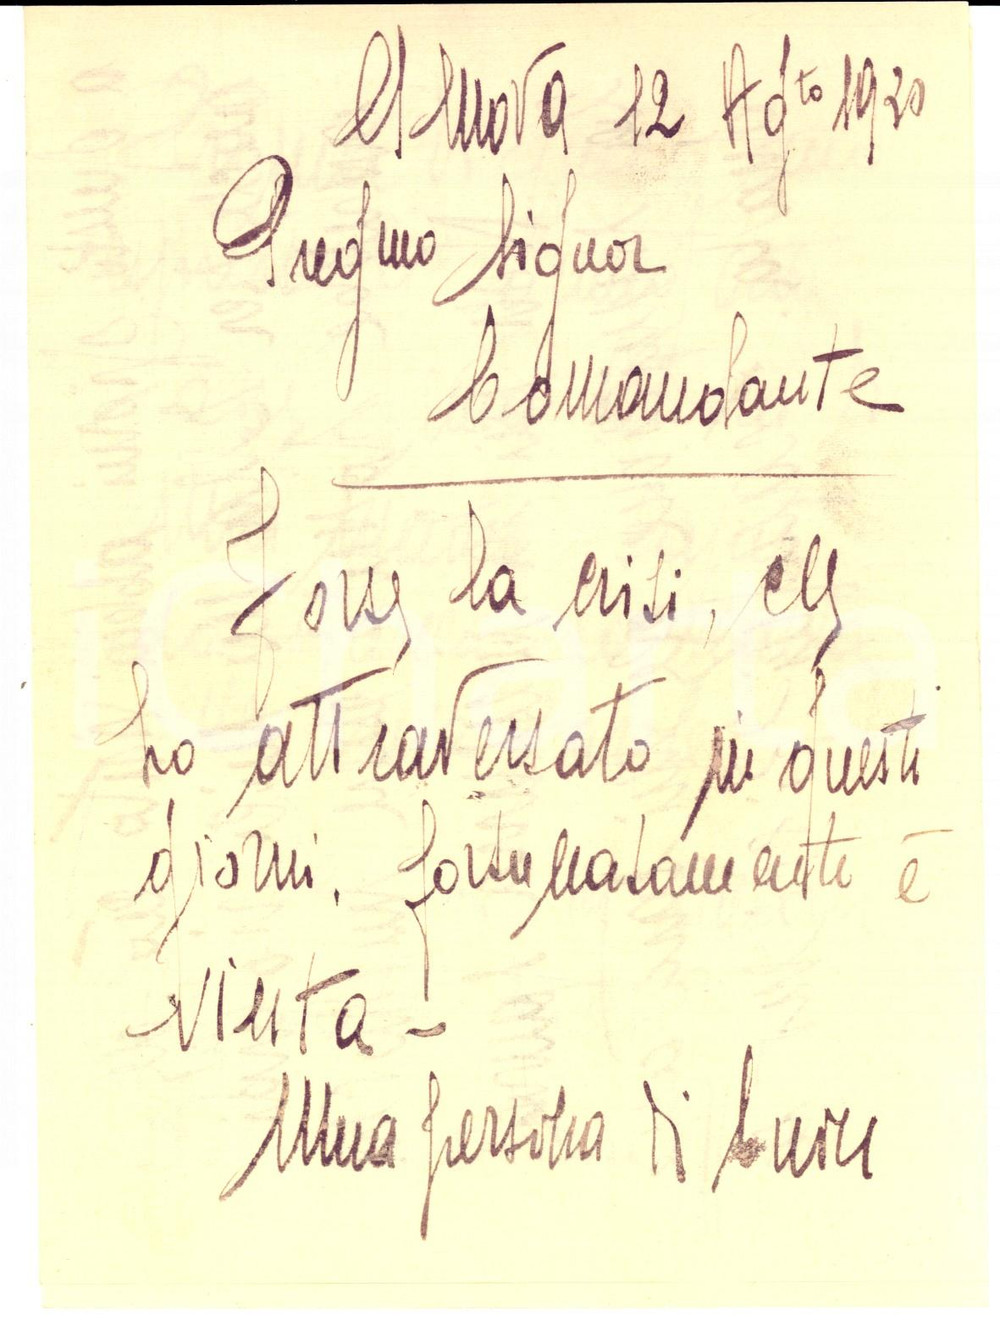 Genova 12 Ag.to 1920
Pregmo Signor
Comandante
Forse la crisi, che
ho attraversato in questi
giorni, fortunatamente è
vinta -
Una persona di cuore